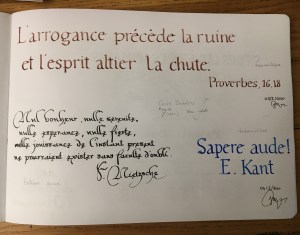 L'arrogance précède la ruine
et l'esprit altier La chute.
Proverbes, 16,18
Nul bonheur, nulle sérénité,
nulle espérance, nulle fierté,
nulle jouissance de l'instant présent
ne pourraient exister sans faculté d'oubli.
F. Nietzsche
Sapere aude!
E. Kant